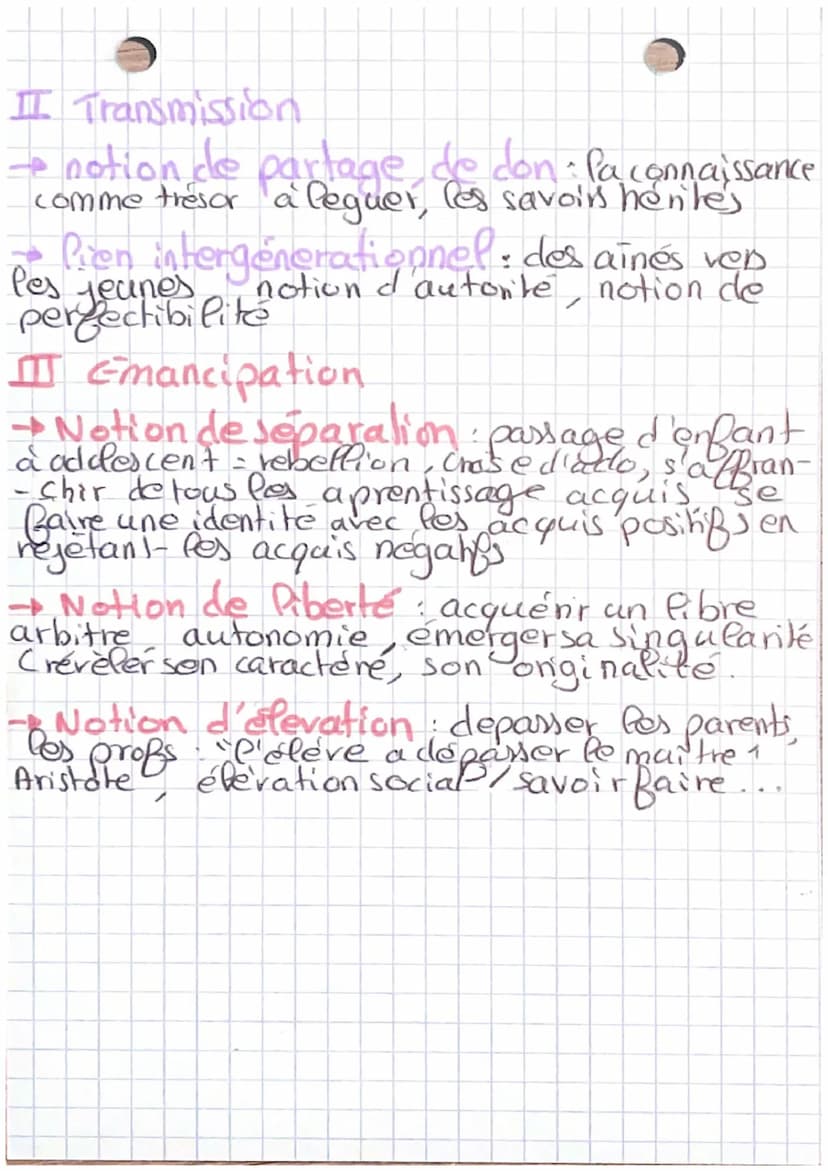 II Transmission
→ notion de partage, de don : la connaissance
comme trésor à leguer, les savoirs hérités
→ lien intergénerationnel : des aînés vers
les jeunes, notion d'autorité, notion de
perfectibilité
III Emancipation
→ Notion de séparation : passage d'enfant
à addolescent = rebellion, crise d'ado, s'affran-
-chir de tous les aprentissage acquis se
faire une identité avec les acquis positifs en
rejetant les acquis négatifs
→ Notion de liberté : acquérir un libre
arbitre, autonomie, émerger sa singularité
(révéler son caractère, son originalité.
→ Notion d'élevation : depasser les parents,
les profs : "l'élève a dépasser le maître"
Aristote, élévation social / savoir faire ...